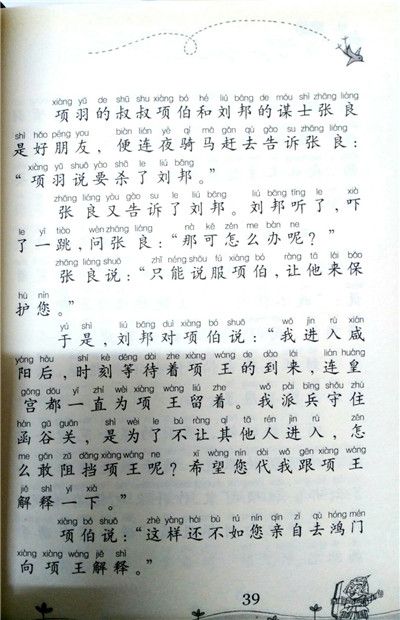 xiàng yǔ de shū shu xiàng bó hé liú bāng de móu shì zhāng liáng
项羽的叔叔项伯和刘邦的谋士张良
shì hǎo péng you biàn lián yè qí mǎ gǎn qù gào su zhāng liáng
是好朋友，便连夜骑马赶去告诉张良：
xiàng yǔ shuō yào shā le liú bāng
“项羽说要杀了刘邦。”
zhāng liáng yòu gào su le liú bāng liú bāng tīng le xià
张良又告诉了刘邦。刘邦听了，吓
le yí tiào wèn zhāng liáng nà kě zěn me bàn ne
了一跳，问张良：“那可怎么办呢？”
zhāng liáng shuō zhǐ néng shuō fú xiàng bó ràng tā lái bǎo
张良说：“只能说服项伯，让他来保
hù nín
护您。”
yú shì liú bāng duì xiàng bó shuō wǒ jìn rù xián
于是，刘邦对项伯说：“我进入咸
yáng hòu shí kè děng dài zhe xiàng wáng de dào lái lián huáng
阳后，时刻等待着项王的到来，连皇
gōng dōu yì zhí wèi xiàng wáng liú zhe wǒ pài bīng shǒu zhù
宫都一直为项王留着。我派兵守住
hán gǔ guān shì wèi le bù ràng qí tā rén jìn rù zěn
函谷关，是为了不让其他人进入，怎
me gǎn zǔ dǎng xiàng wáng ne xī wàng nín dài wǒ gēn xiàng wáng
么敢阻挡项王呢？希望您代我跟项王
jiě shì yí xià
解释一下。”
xiàng bó shuō zhè yàng hái bù rú nín qīn zì qù hóng mén
项伯说：“这样还不如您亲自去鸿门
xiàng xiàng wáng jiě shì
向项王解释。”
39